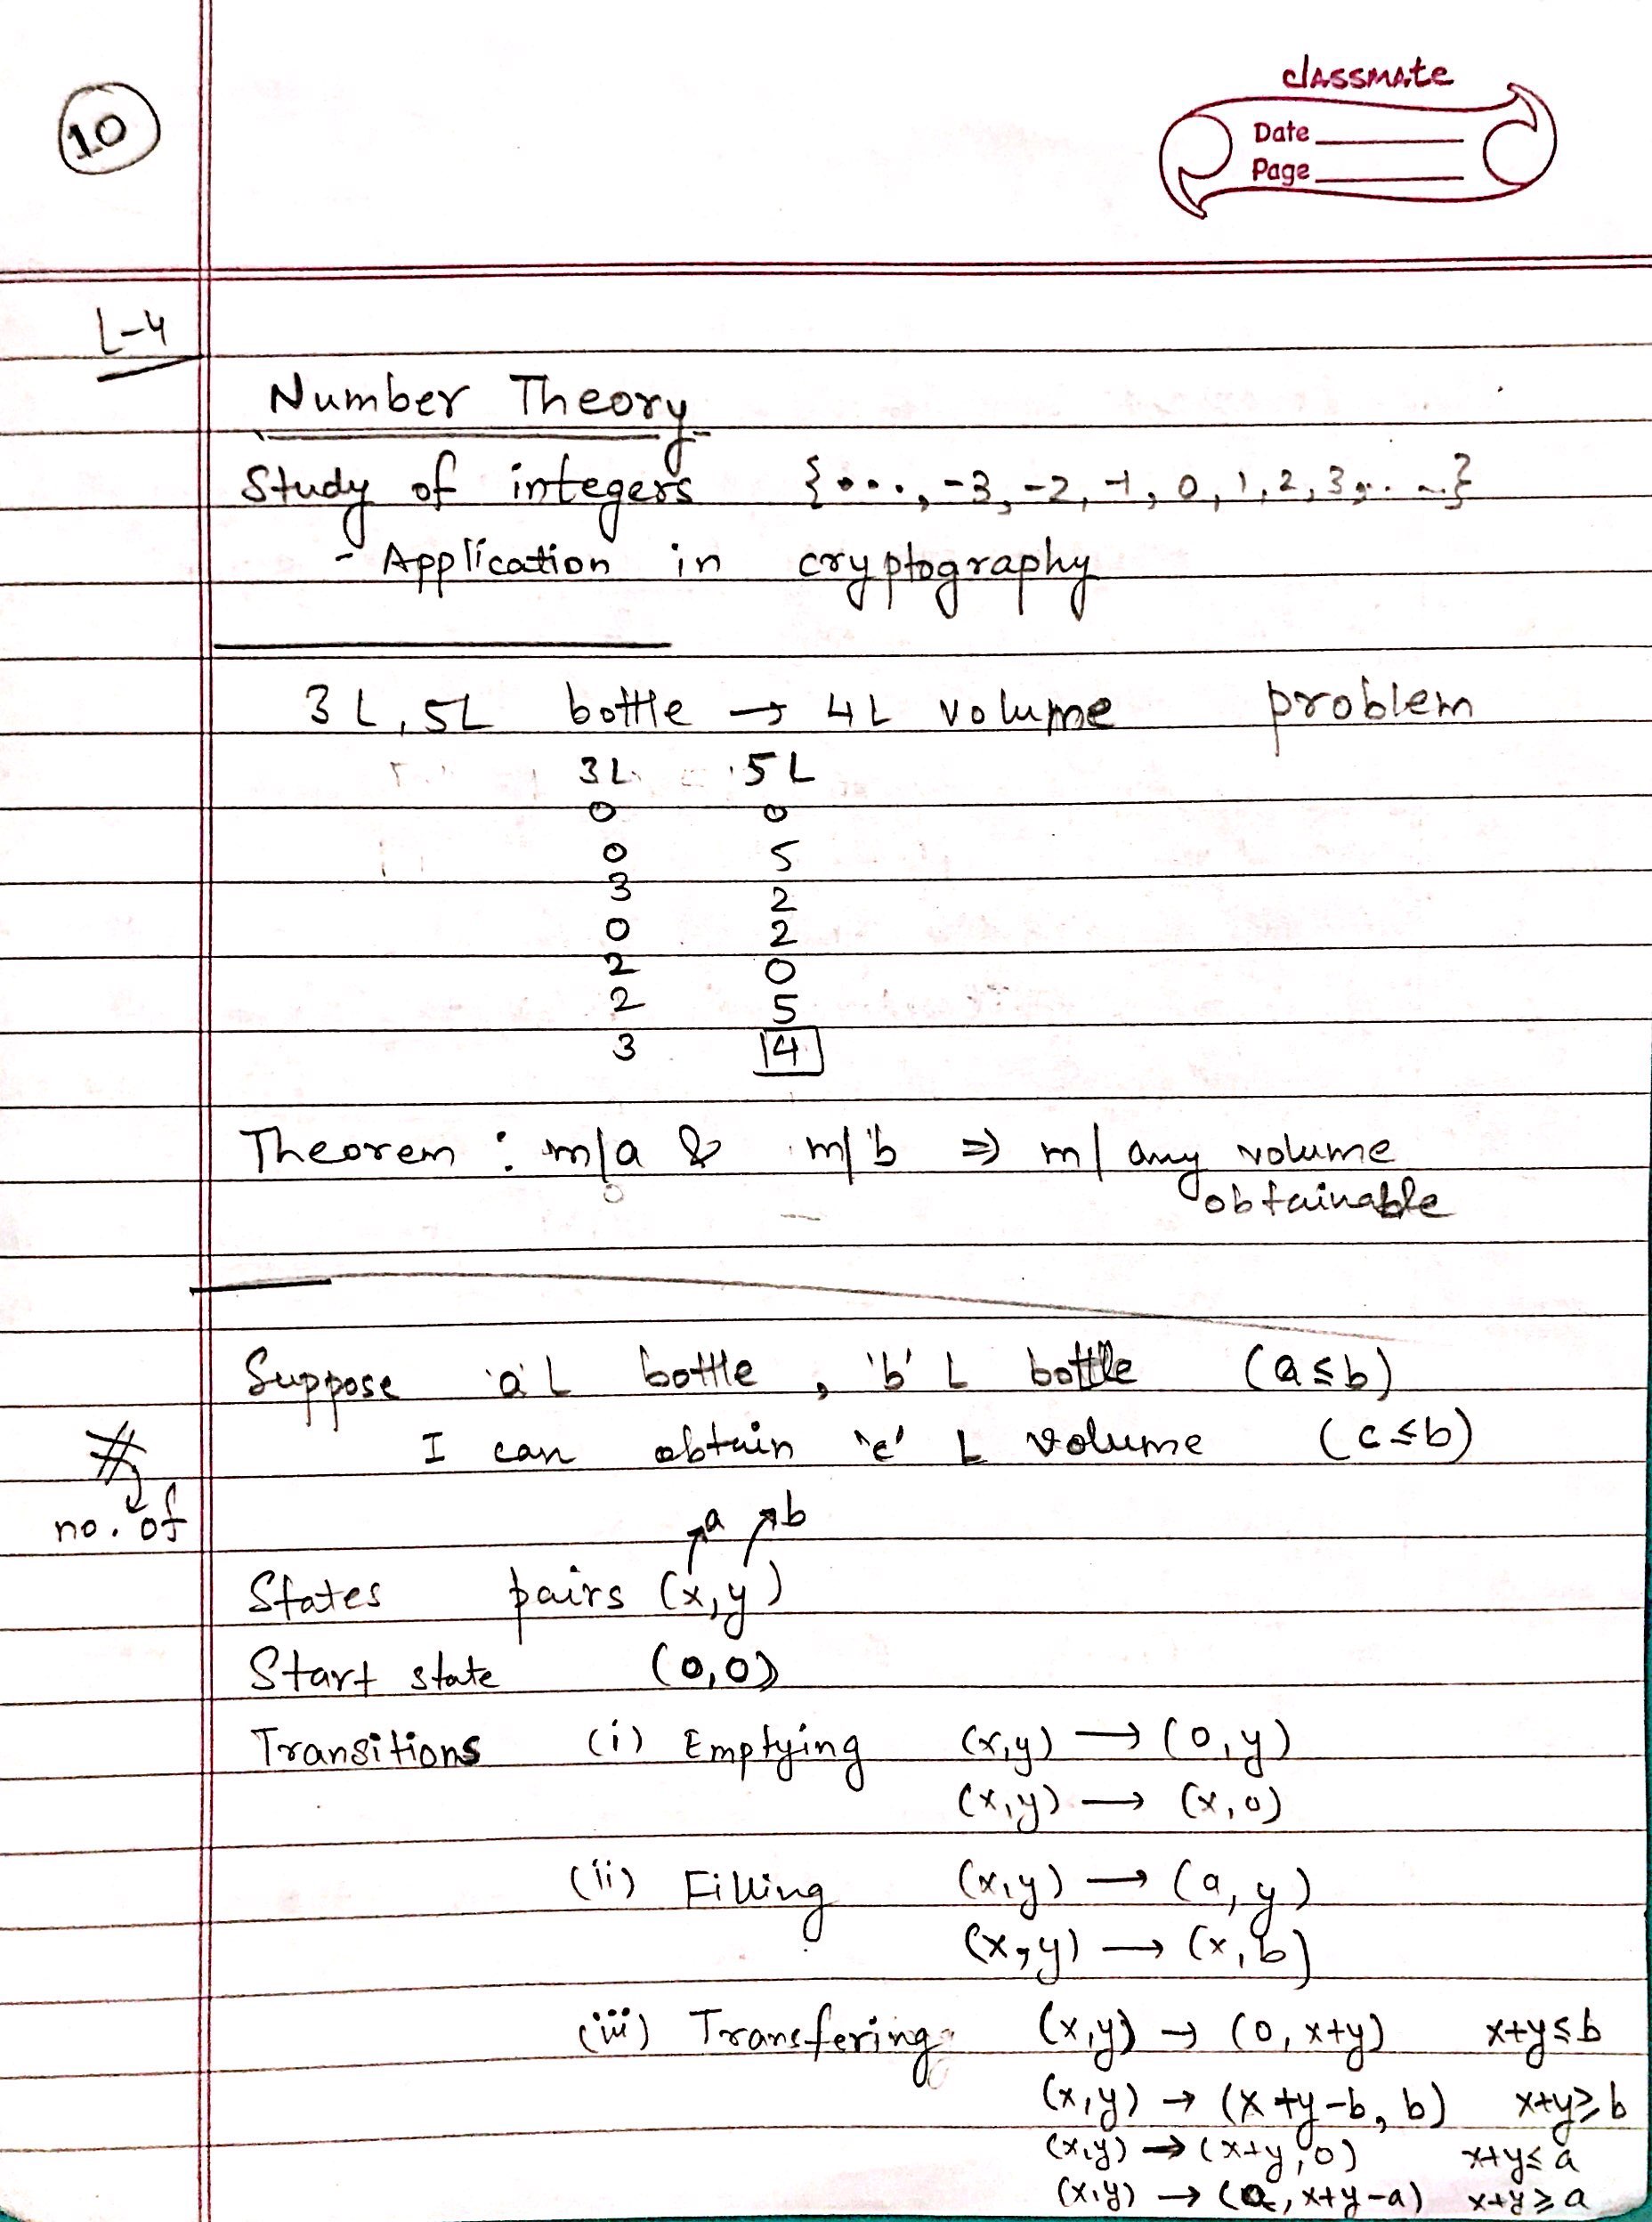 10
classmate
Date
Page
L-4
Number Theory
Study of integers {..., -3, -2, -1, 0, 1, 2, 3, ...}
- Application in cryptography
3L, 5L bottle → 4L volume problem
3L 5L
0 0
0 5
3 2
0 2
2 0
2 5
3 4
Theorem : m|a & m|b ⇒ m| any volume
obtainable
Suppose 'a' L bottle , 'b' L bottle (a≤b)
I can obtain 'c' L volume (c≤b)
#
no. of
a b
States pairs (x,y)
Start state (0,0)
Transitions (i) Emptying (x,y) → (0,y)
(x,y) → (x,0)
(ii) Filling (x,y) → (a,y)
(x,y) → (x,b)
(iii) Transfering (x,y) → (0, x+y) x+y≤b
(x,y) → (x+y-b, b) x+y≥b
(x,y) → (x+y,0) x+y≤a
(x,y) → (a, x+y-a) x+y≥a